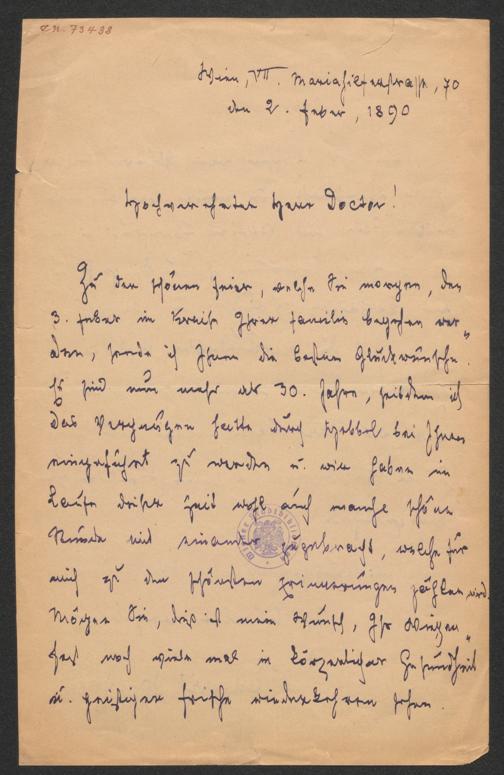 I.N. 73488
Wien, VII. Mariahilferstrasse, 70
den 2. Feber, 1890
Hochverehrter Herr Doctor!
Zu der schönen Feier, welche Sie morgen, den
3. Feber im Kreise Ihrer Familie begehen wer-
den, sende ich Ihnen die besten Glückwünsche.
Es sind nun mehr als 30. Jahre, seitdem ich
das Vergnügen hatte durch Hebbel bei Ihnen
eingeführt zu werden u. wir haben im
Laufe dieser Zeit wohl auch manche schöne
Stunde mit einander zugebracht, welche für
mich zu den schönsten Erinnerungen zählen wird.
Mögen Sie, dies ist mein Wunsch, Ihr Wiegen-
fest noch viele mal in körperlicher Gesundheit
u. geistiger Frische wiederkehren sehen.